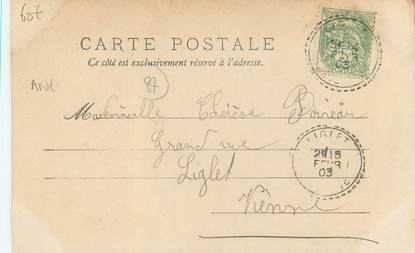 60€
CARTE POSTALE
Ce côté est exclusivement réservé à l'adresse.
87
Mademoiselle Thérèse
Grand rue
Liglet
Vienne
LIGLET
15
FEVR
03